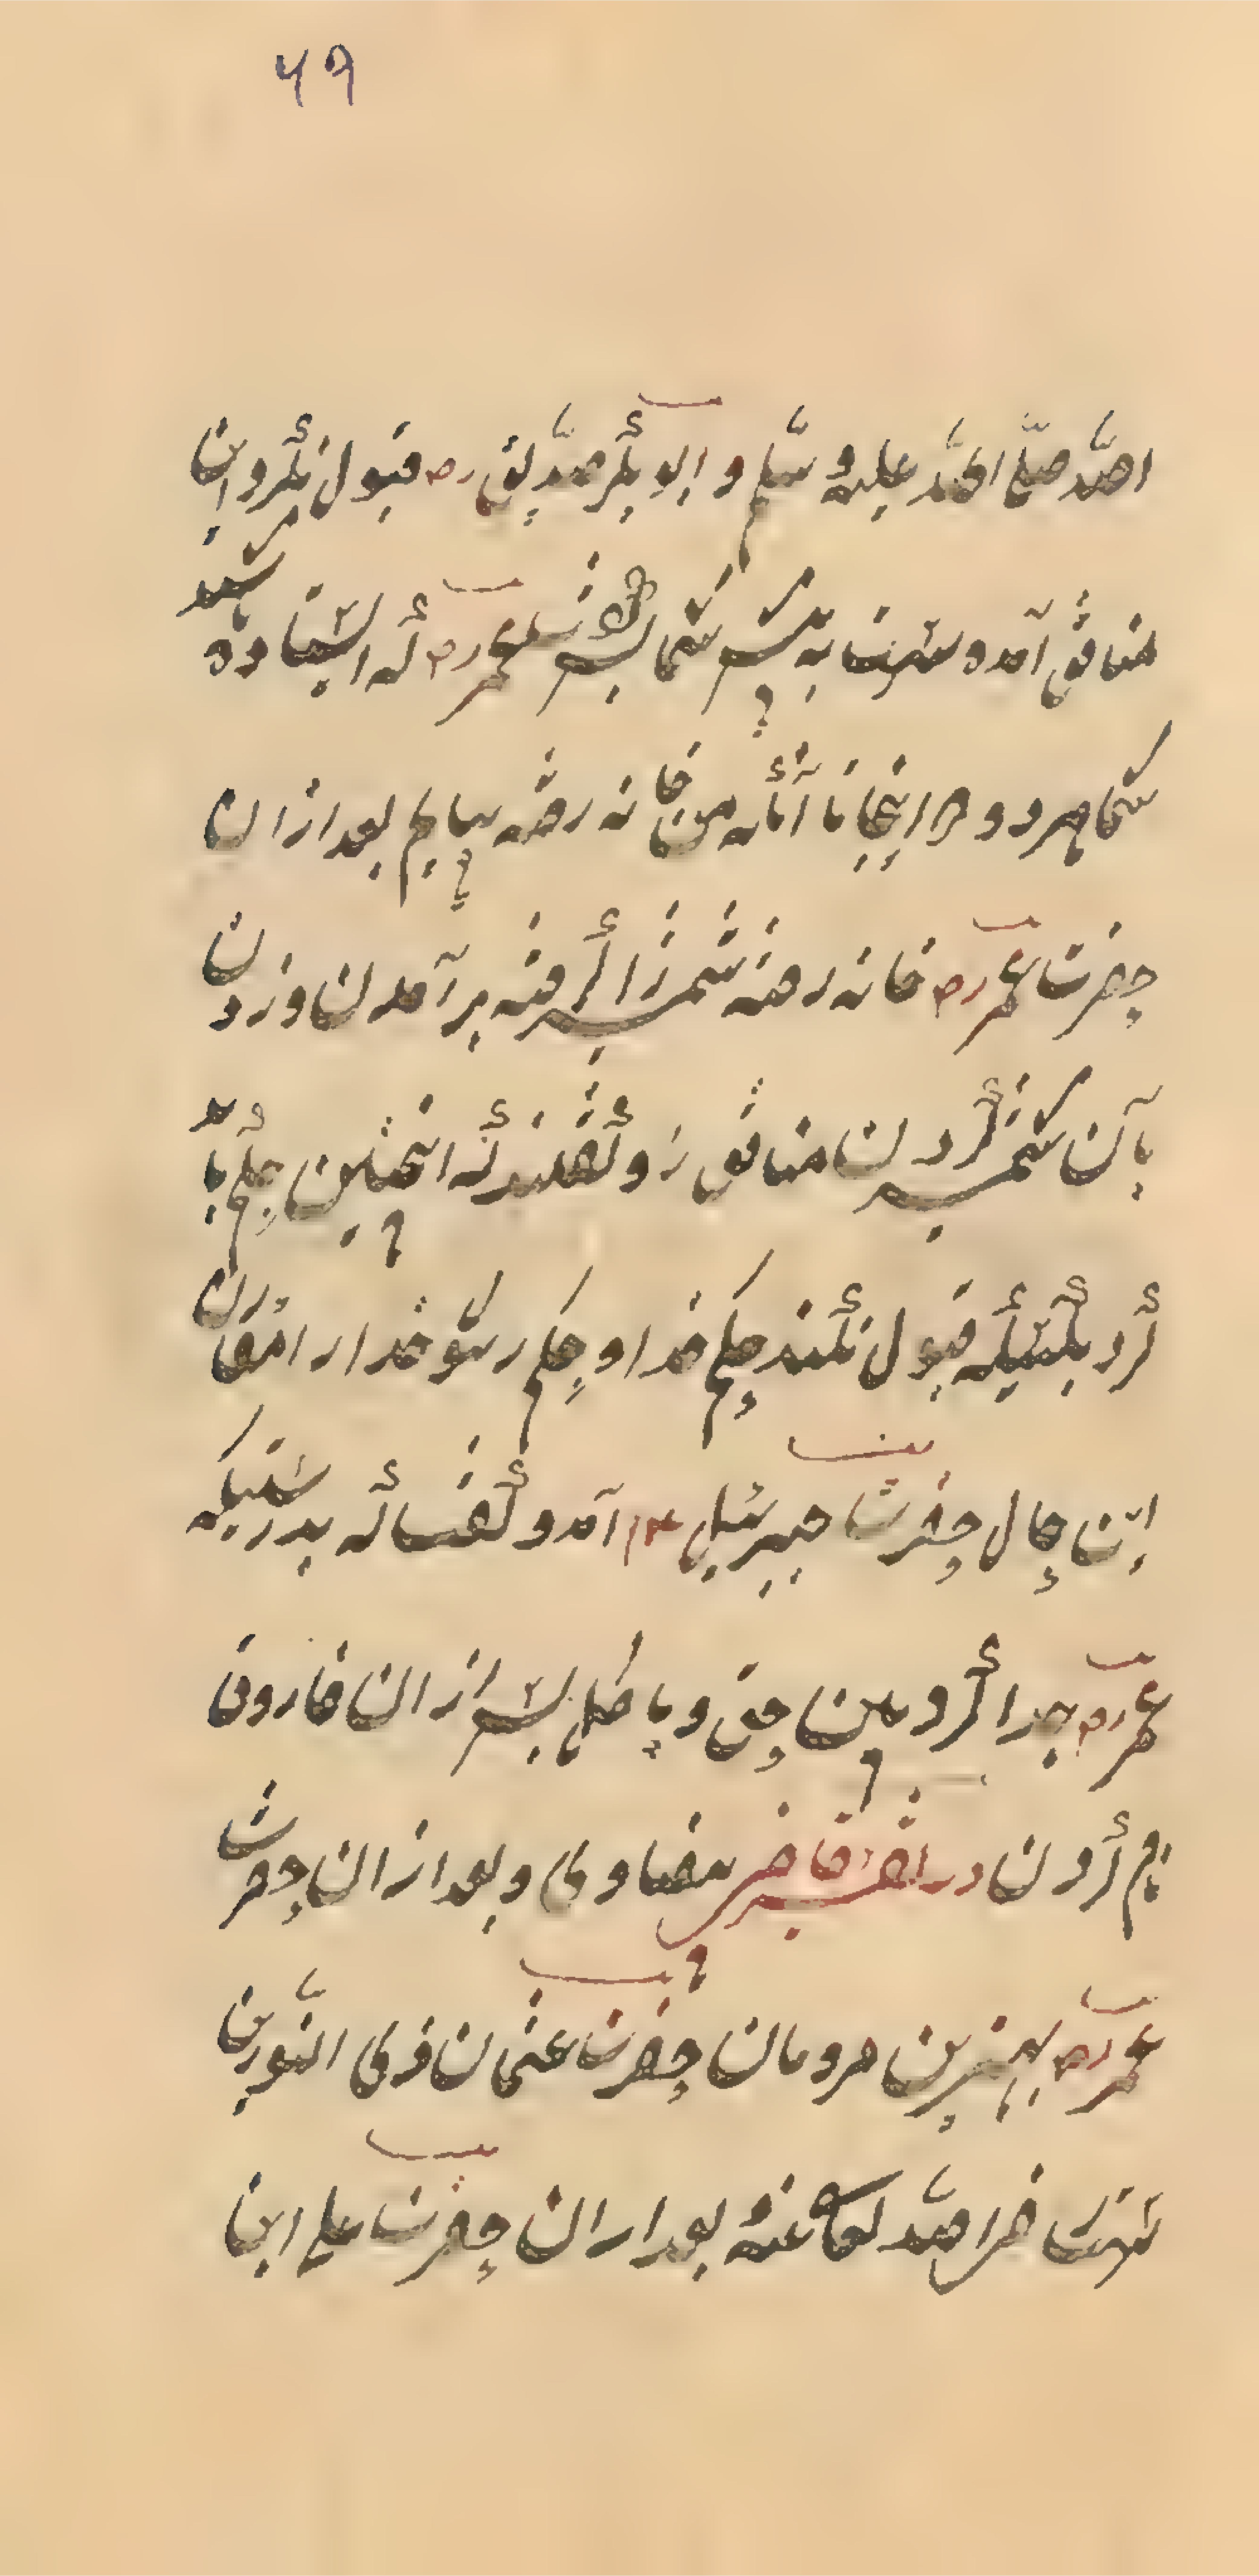 ۴۹
اللّه صلّی اللّه علیه و سلّم و ابو بکر صدّیق رض قبول نکرد و این
منافق آمده است به پیش شما پس عمر رض که استاده باشید
شما هر دو در اینجا تا آنکه من خانه رفته بیایم بعد از ان
حضرت عمر رض خانه رفته شمشیر را گرفته بر آمدن و زدن
با آن شمشیر گردن منافق را و گفتند که اینچنین حکم باید
کرد بکسیکه قبول نکند حکم خدا و حکم رسول خدا را در آن
این حال حضرت جبرئیل ع م آمد و گفت که بدرستیکه
عمر رض جدا کرد بین حق و باطل پس از ان فاروق
نام کردن در تفسیر قاضی بیضاوی و بعد از ان حضرت
عمر رض بهترین مردمان حضرت عثمان ذی النّورین
است رضی اللّه تعالی عنه بعد از ان حضرت علی ابن